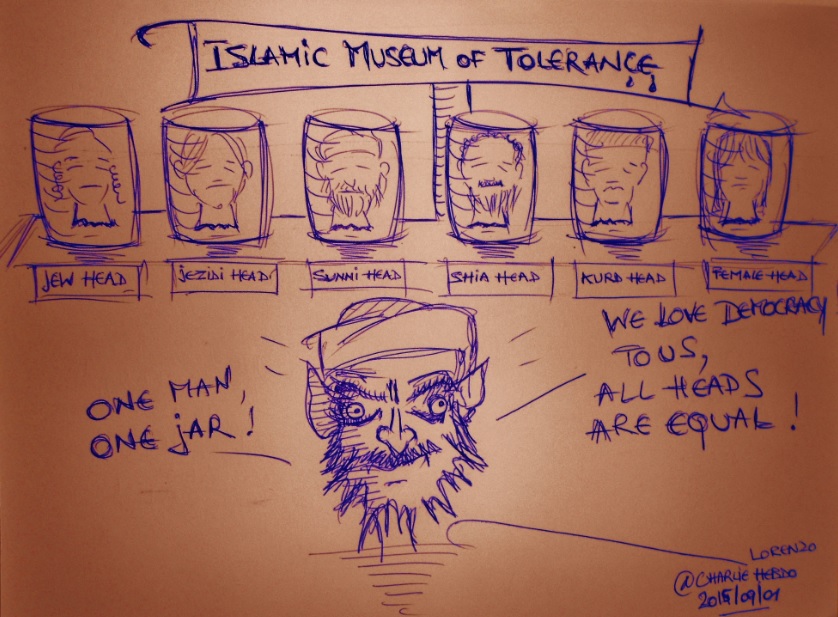 ISLAMIC MUSEUM OF TOLERANCE
JEW HEAD
JEZIDI HEAD
SUNNI HEAD
SHIA HEAD
KURD HEAD
FEMALE HEAD
ONE MAN,
ONE JAR!
WE LOVE DEMOCRACY
TO US,
ALL HEADS
ARE EQUAL!
LORENZO
@CHARLIE HEBDO
2015/09/01